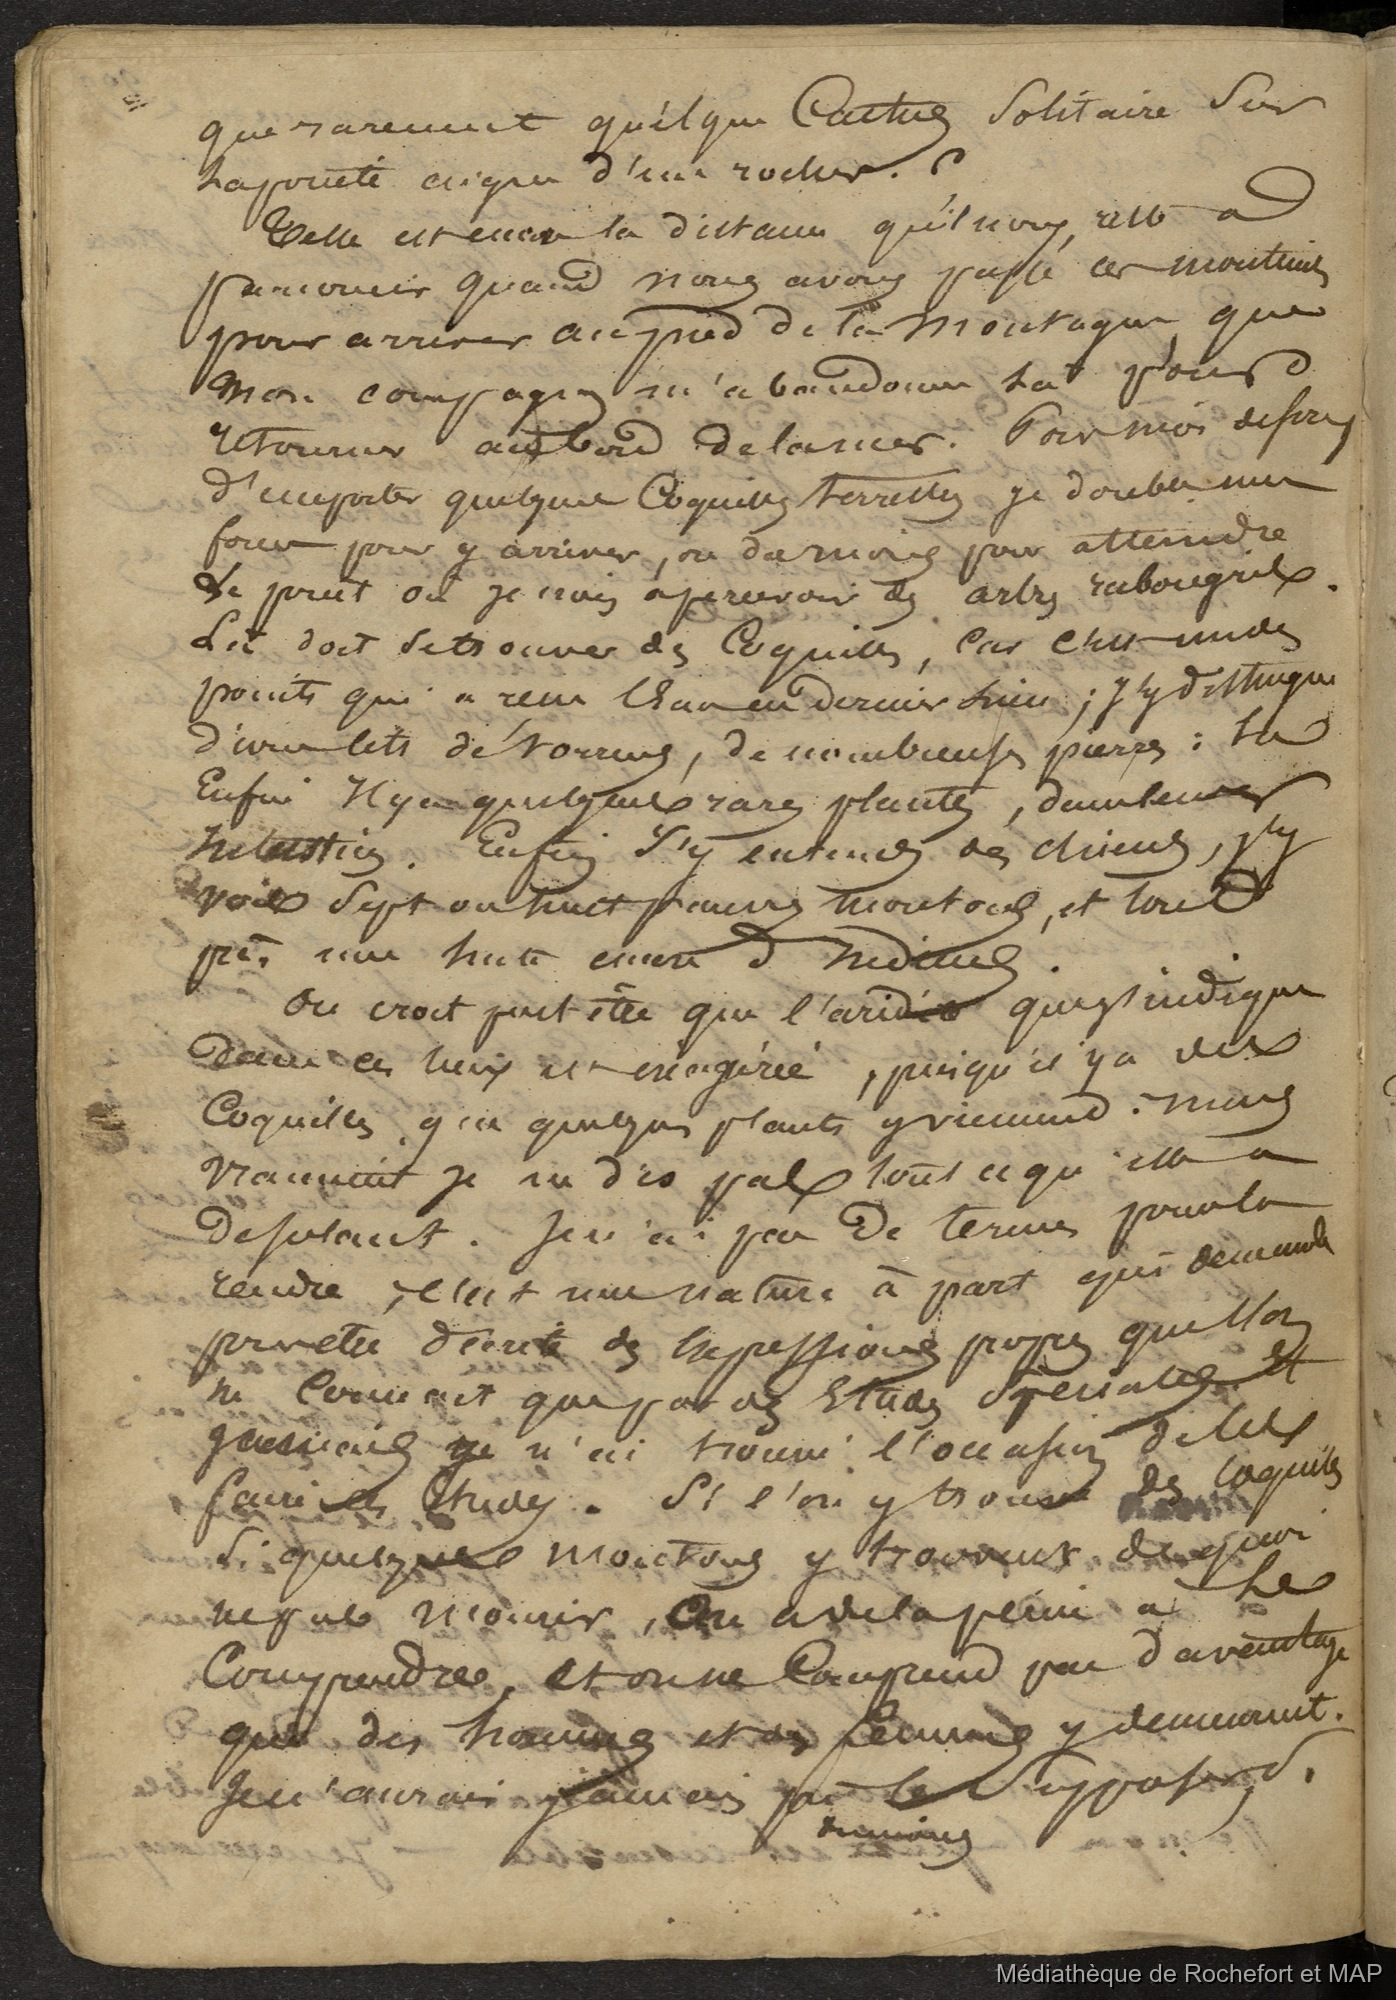 que rarement quelque Cactus Solitaire Sur
La pointe aigue d'un rocher.
Telle est encore la distance qu'il nous reste a
parcourir quand nous avons passé ces monticules
pour arriver au pied de la Montagne, que
Mon compagnon m'abandonne La pour
retourner au bord de la mer. Pour moi desireux
d'emporter quelques Coquilles terrestres je double mes
forces pour y arriver, ou du moins pour atteindre
Le point où je crois apercevoir des arbres rabougris.
Là doit Se trouver des Coquilles, Car c'est un des
points qui a reçu l'Eau en dernier Lieu ; J'y distingue
divers lits de torrens, de nombreuses pierres : Là
Enfin Il y a quelques rares plantes,
Enfin J'y entends des chiens, j'y
vois Sept ou huit pauvres moutons, et tout
près une hutte encore d'Indiens.
On croit peut être que l'aridité que j'indique
dans ces lieux est exagérée, puisqu'il y a des
Coquilles, que quelques plantes y viennent. mais
vraiment je ne dis pas tout ce qu'elle a
desolant. Je n'ai pas De termes pour la
rendre, c'est une nature à part qui demande
pour être décrite des Expressions propres que l'on
ne Connoit que par des Etudes Spéciales et
jamais je n'ai trouvé l'occasion de les
faire ces Etudes. Si l'on y trouve des Coquilles
Si quelques Moutons y trouvent de quoi
ne pas mourir, On a de la peine a Le
Comprendre, et on ne Comprend pas davantage
que des hommes et des femmes y demeurent.
Je n'aurais jamais pu le Supposer,
du moins
Médiathèque de Rochefort et MAP